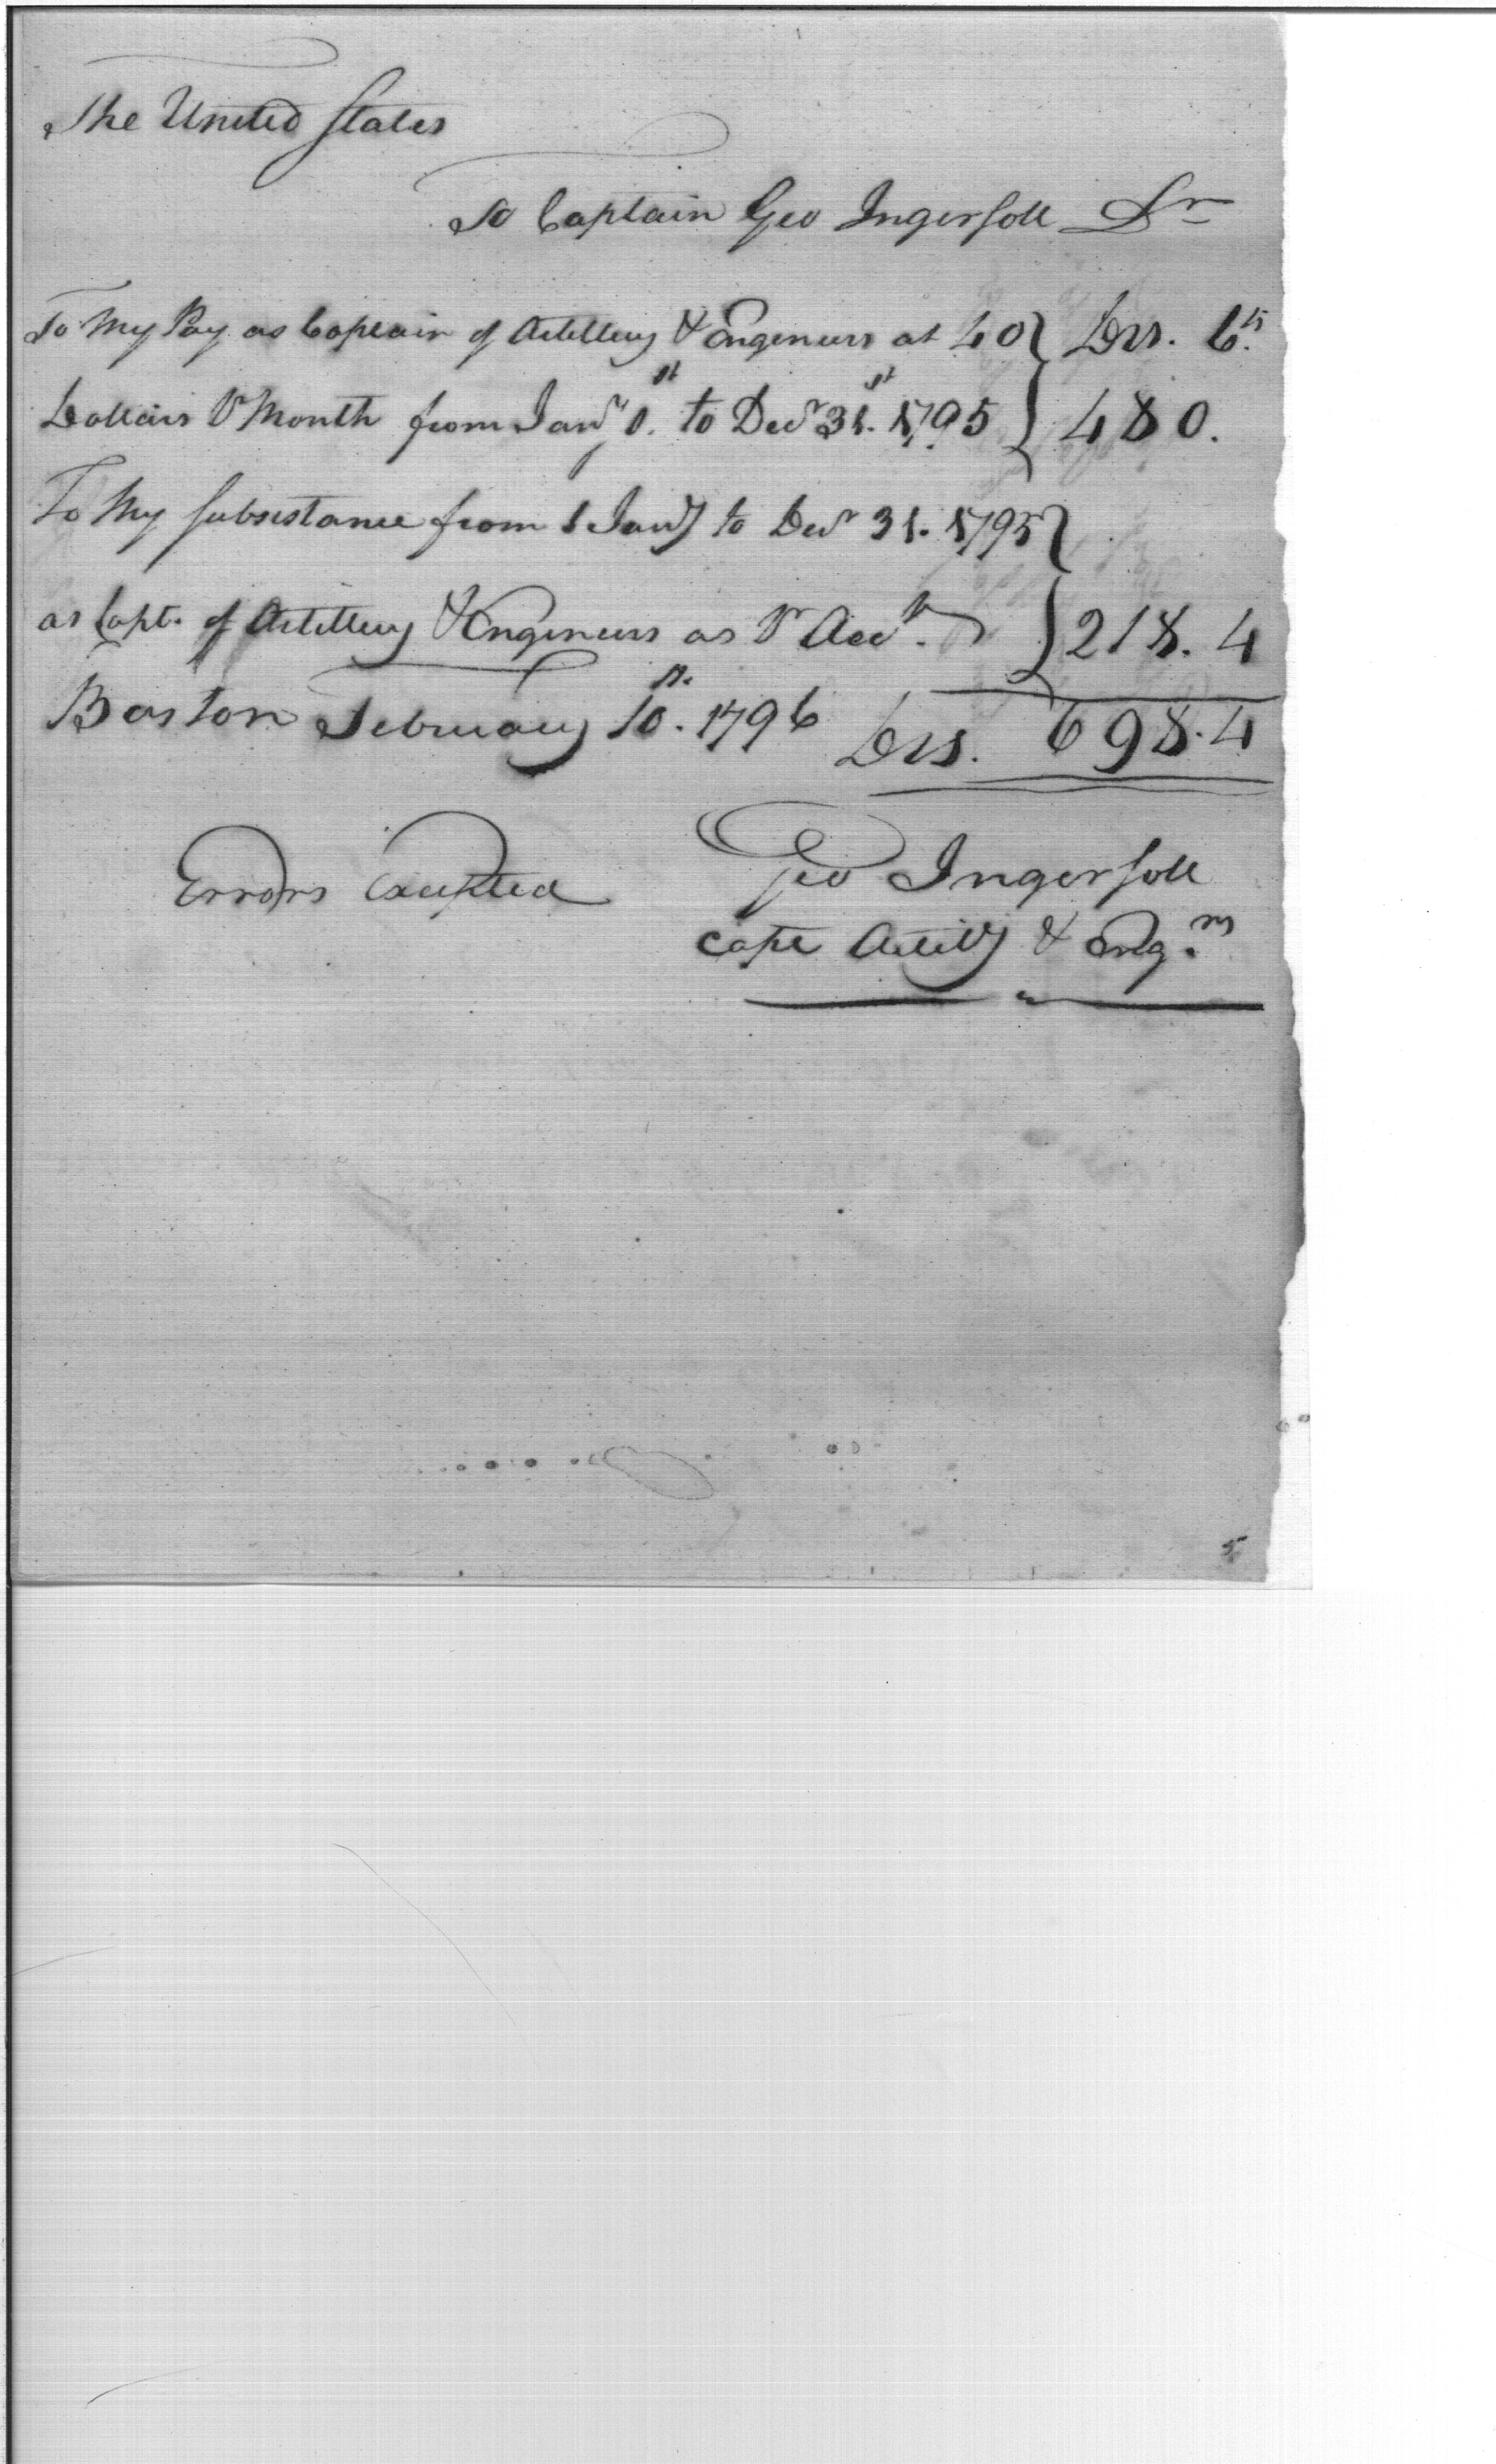 The United States
To Captain Geo Ingersoll Dr
To My Pay as Captain of Artillery & Engineers at 40 } Drs. Cts.
Dollars Pr Month from Jany 1st. to Decr 31st. 1795 } 480.
To My Subsistance from 1 Jany to Decr 31. 1795 }
as Capt. of Artillery & Engineers as Pr Acct. } 218.4
Boston February 10th. 1796 Drs. 698.4
Errors Excepted Geo Ingersoll
Capt Artilly & Engrs
5